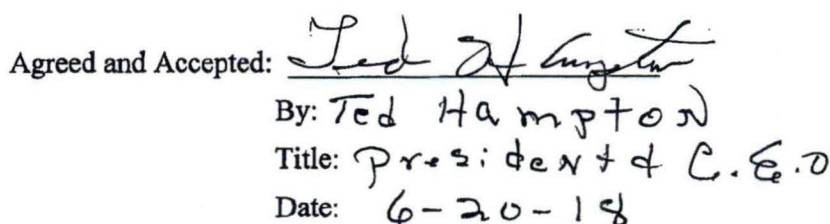 Agreed and Accepted: Ted Hampton
By: Ted Hampton
Title: President & C.E.O
Date: 6-20-18